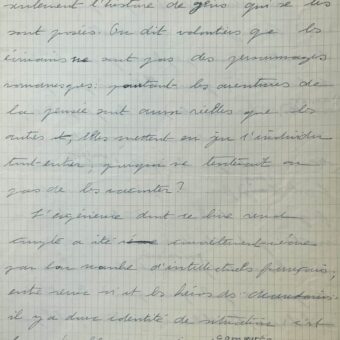 seulement l'histoire de gens qui se les
sont posées. On dit volontiers que les
écrivains ne sont pas des personnages
romanesques: pourtant les aventures de
la pensée sont aussi réelles que les
autres et, elles mettent en jeu l'individu
tout entier, pourquoi ne tenterait-on
pas de les raconter?
L'expérience dont ce livre rend
compte a été concrètement vécue
par bon nombre d'intellectuels français;
entre eux et les héros de
il y a donc identité de situation; c'est